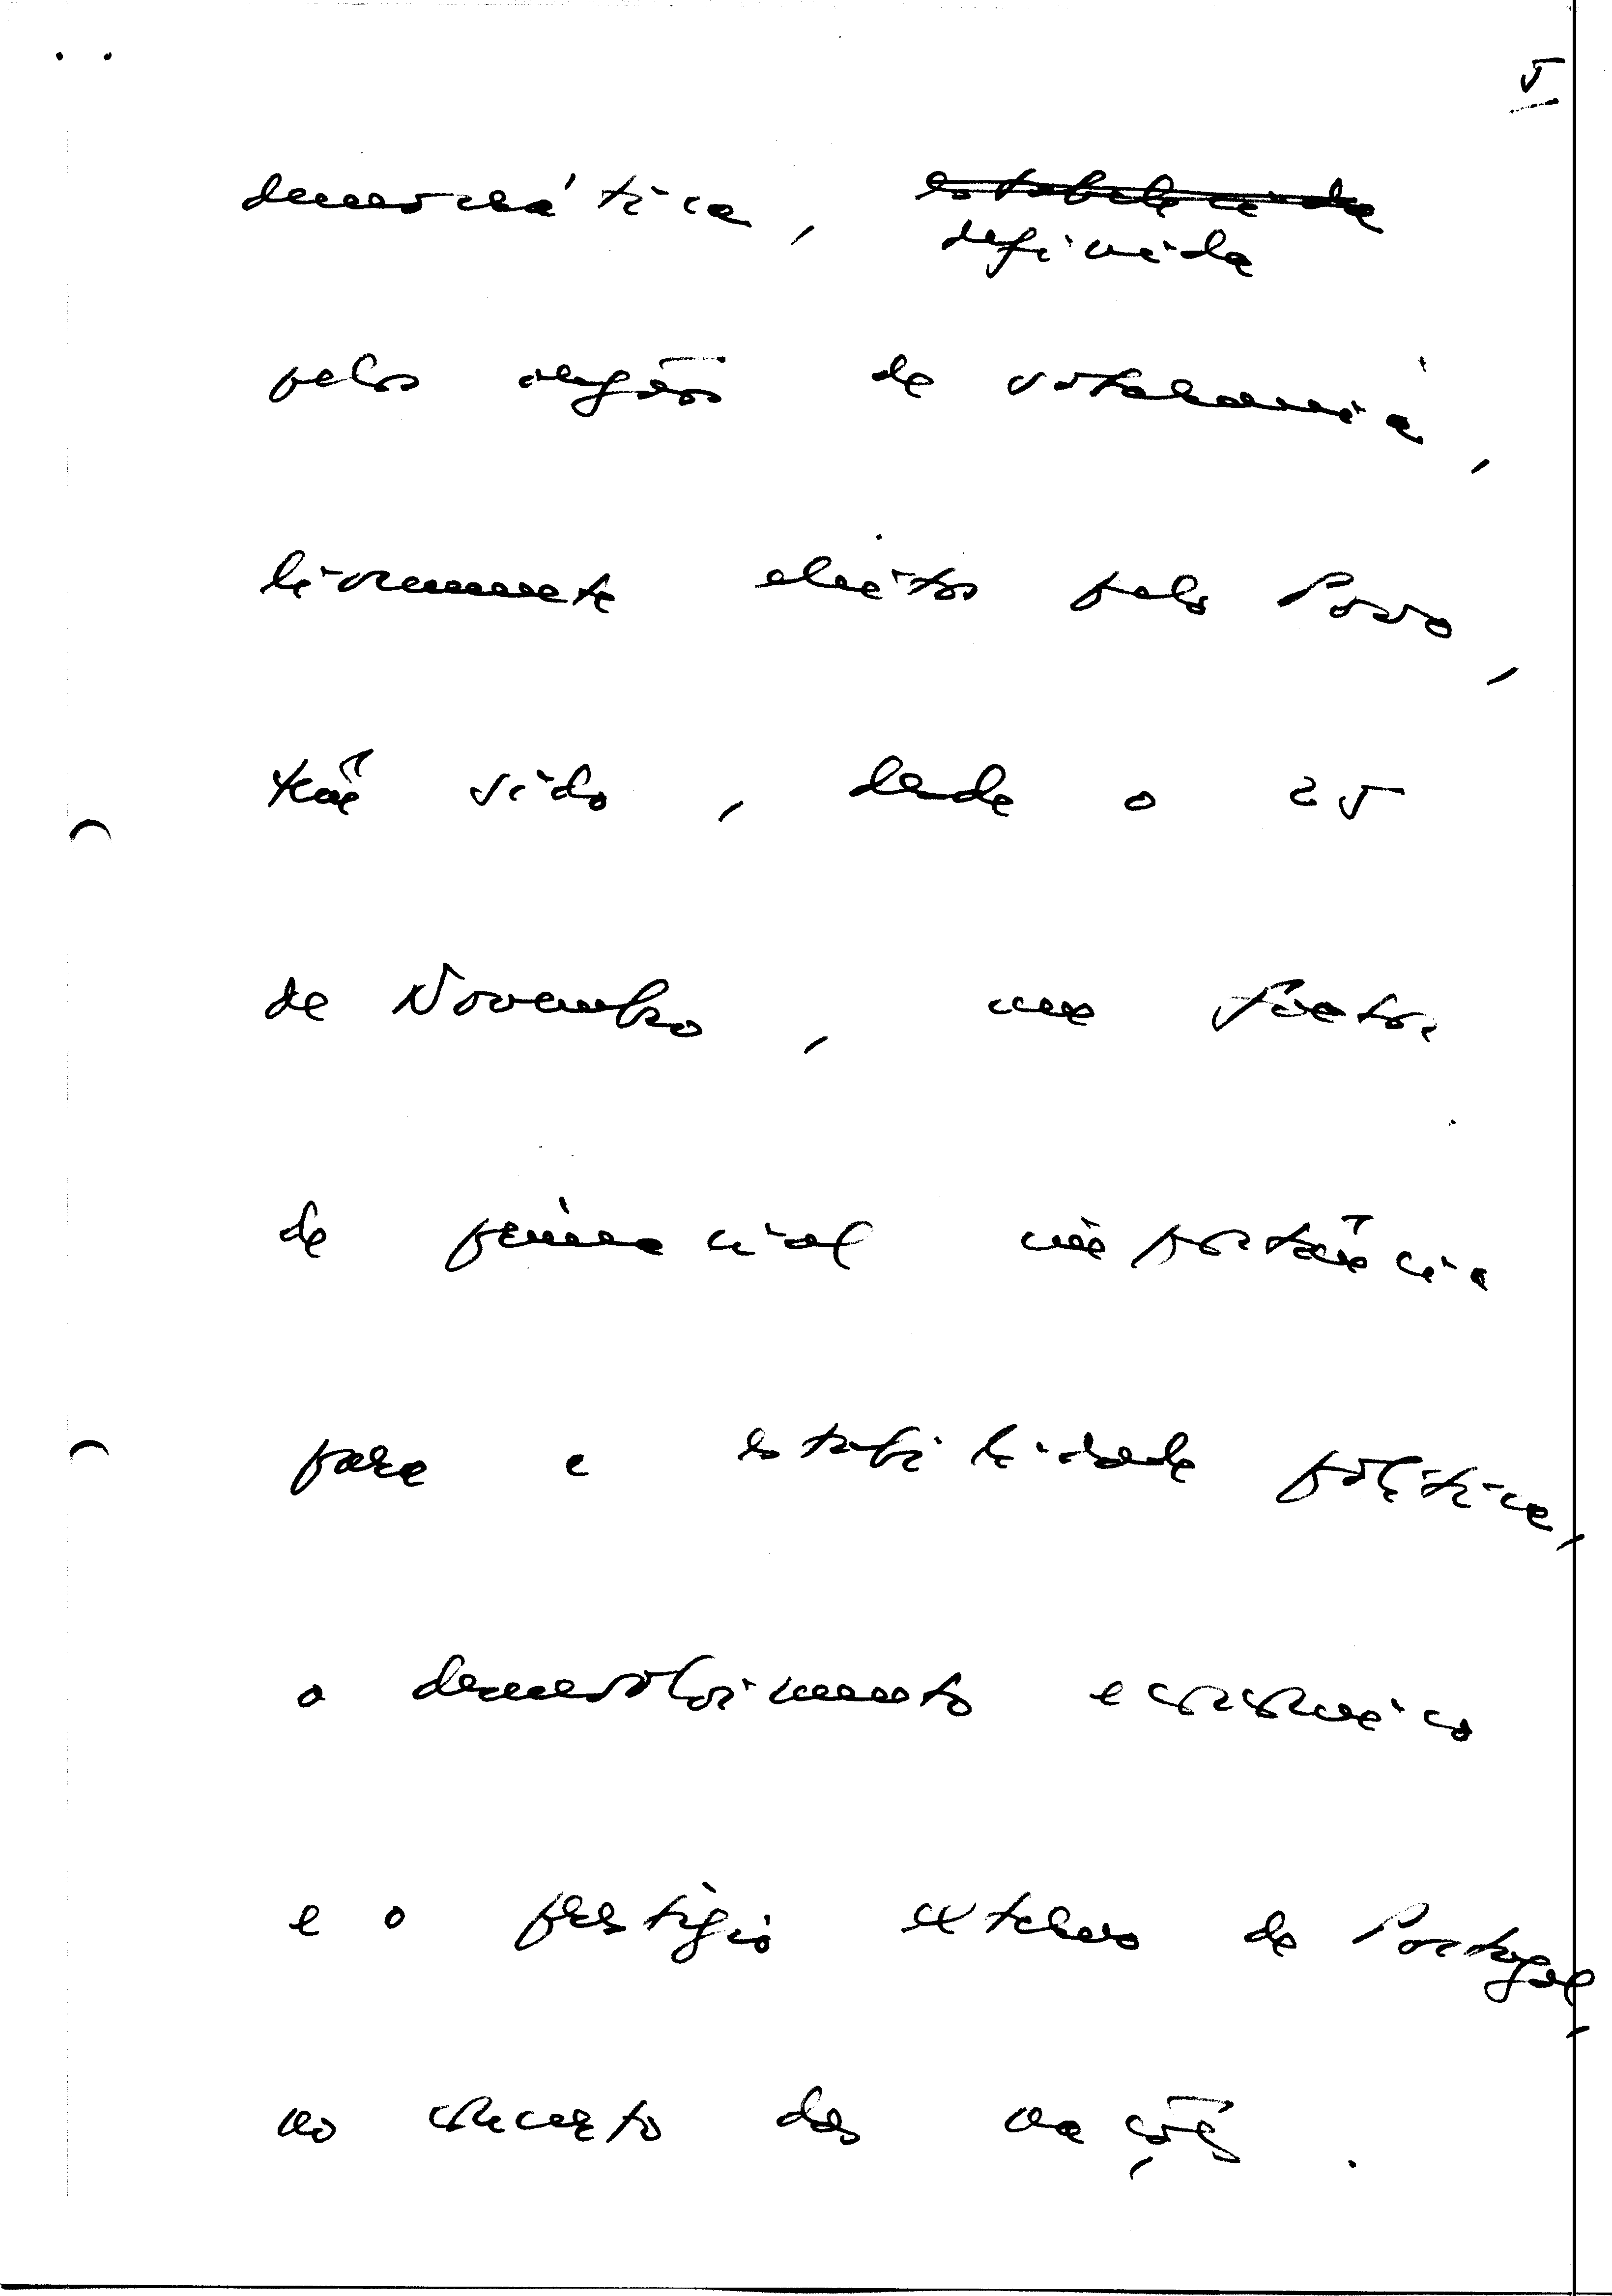 5
democrática, ~~estabelecida~~
definida
pelos orgãos de soberania,
livremente eleitos pelo Povo,
têm sido, desde o 25
de Novembro, um factor
de primacial importância
para a estabilidade política,
o desenvolvimento económico
e o prestígio externo de Portugal,
no concerto das nações.